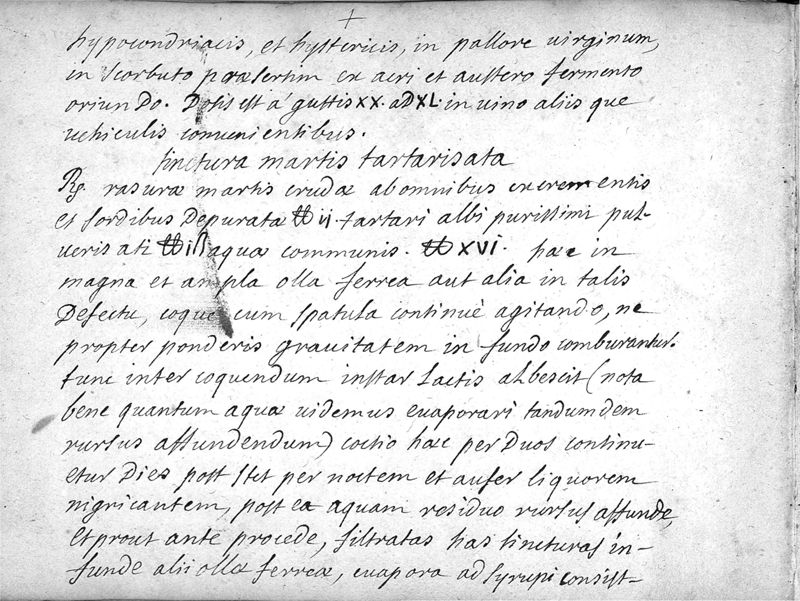 +
hypocondriacis, et hystericis, in pallore uirginum,
in scorbuto præsertim ex acri et austero fermento
oriundo. Dosis est á guttis XX. ad XL. in uino aliis que
uehiculis conuenientibus.
tinctura martis tartarisata
R. rasuræ martis crudæ ab omnibus excrementis
et sordibus Depuratæ ℔ ii. tartari albi purissimi pul-
uerisati ℔ iii aquæ communis. ℔ XVI. hæc in
magna et ampla olla ferrea aut alia in talis
Defectu, coque cum spatula continuè agitando, ne
propter ponderis grauitatem in fundo comburantur.
tunc inter coquendum instar Lactis albescit (nota
bene quantum aquæ uidemus euaporari tandumdem
rursus affundendum) coctio hæc per Duos continu-
etur Dies post stet per noctem et aufer liquorem
nigricantem, post ea aquam residuo rursus affunde,
et prout ante procede, filtratas has tincturas in-
funde alii ollæ ferreæ, euapora ad syrupi consist-